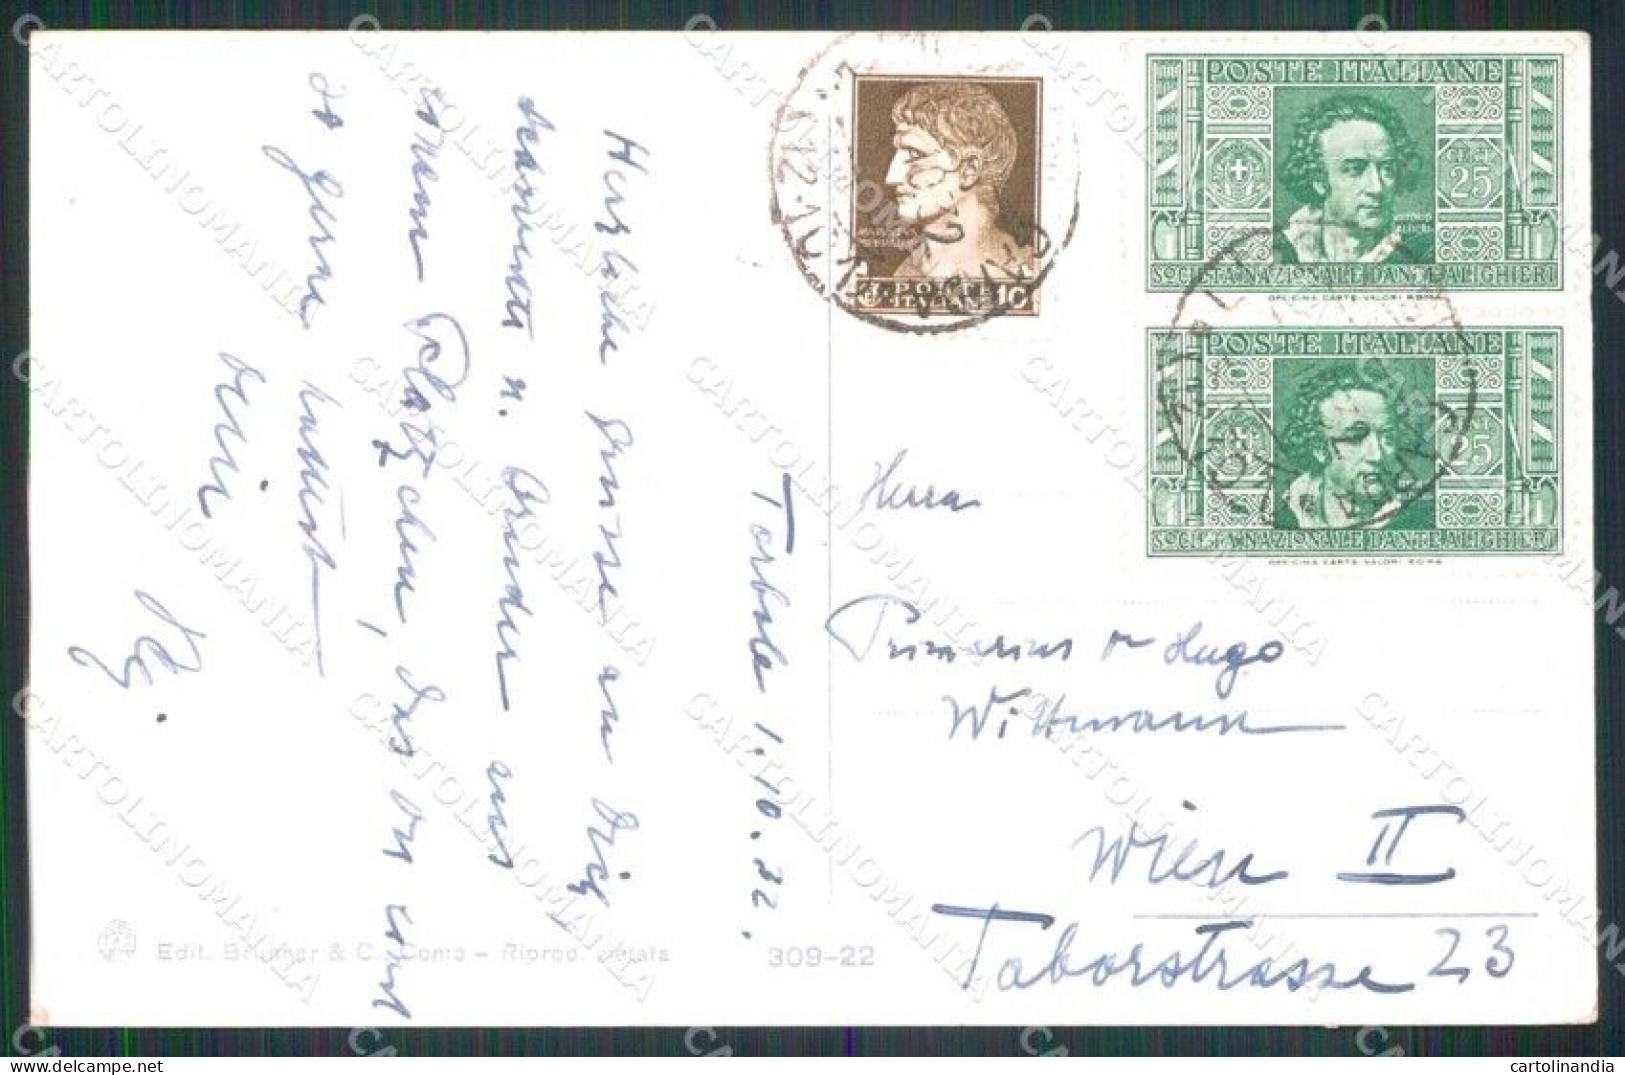 Herzliche Grüsse an Dich
u. Bruder aus
einem Plätzchen, das Du einst
so gerne hattest
Dein
Torbole 1.10.32.
Herrn
Primarius Dr Hugo
Wittmann
Wien II
Taborstrasse 23
POSTE ITALIANE
CENT
25
SOCIETA NAZIONALE DANTE ALIGHIERI
OFFICINA CARTE-VALORI ROMA
POSTE ITALIANE
CENT
25
SOCIETA NAZIONALE DANTE ALIGHIERI
OFFICINA CARTE-VALORI ROMA
POSTE
ITALIANE
10
Edit. Brunner & C. Como - Riprod. vietata
309-22
CARTOLINOMANIA
cartolinandia